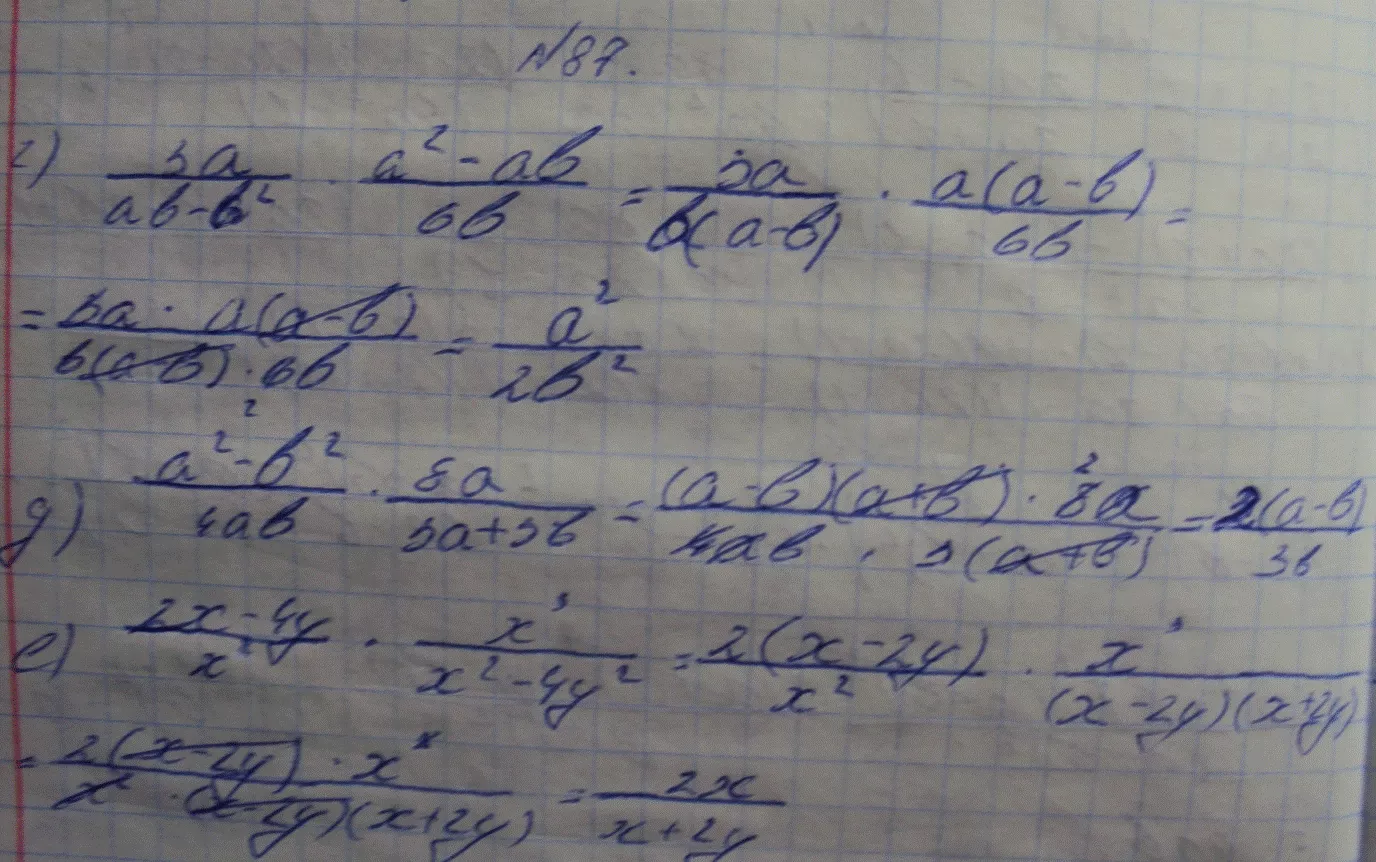 №87.
г) 3a/(ab-b²) · (a²-ab)/(6b) = 3a/(b(a-b)) · a(a-b)/(6b) =
= (3a · a(a-b))/(b(a-b) · 6b) = a²/(2b²)
2
д) (a²-b²)/(4ab) · 8a/(3a+3b) = ((a-b)(a+b) · 8a)/(4ab · 3(a+b)) = 2(a-b)/(3b)
е) (2x-4y)/x² · x³/(x²-4y²) = 2(x-2y)/x² · x³/((x-2y)(x+2y))
= (2(x-2y) · x)/(x · (x-2y)(x+2y)) = 2x/(x+2y)